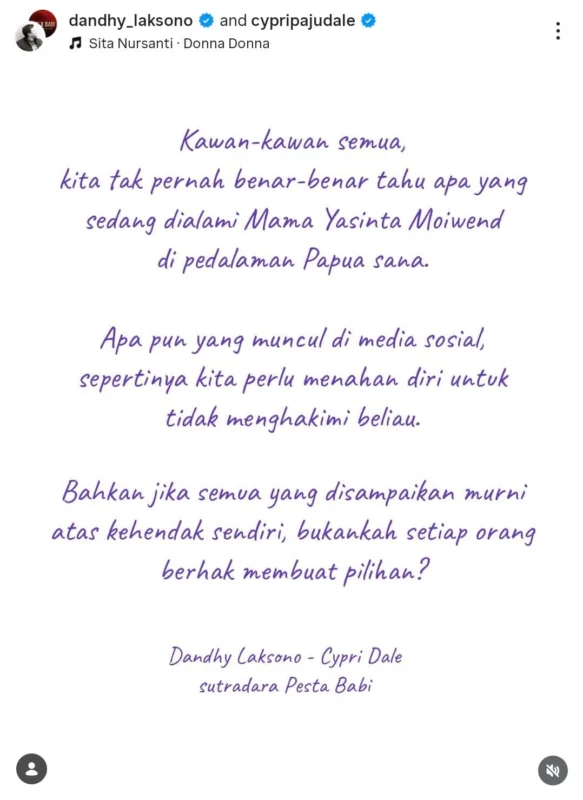 dandhy_laksono and cypripajudale
Sita Nursanti · Donna Donna
Kawan-kawan semua,
kita tak pernah benar-benar tahu apa yang
sedang dialami Mama Yasinta Moiwend
di pedalaman Papua sana.
Apa pun yang muncul di media sosial,
sepertinya kita perlu menahan diri untuk
tidak menghakimi beliau.
Bahkan jika semua yang disampaikan murni
atas kehendak sendiri, bukankah setiap orang
berhak membuat pilihan?
Dandhy Laksono - Cypri Dale
sutradara Pesta Babi